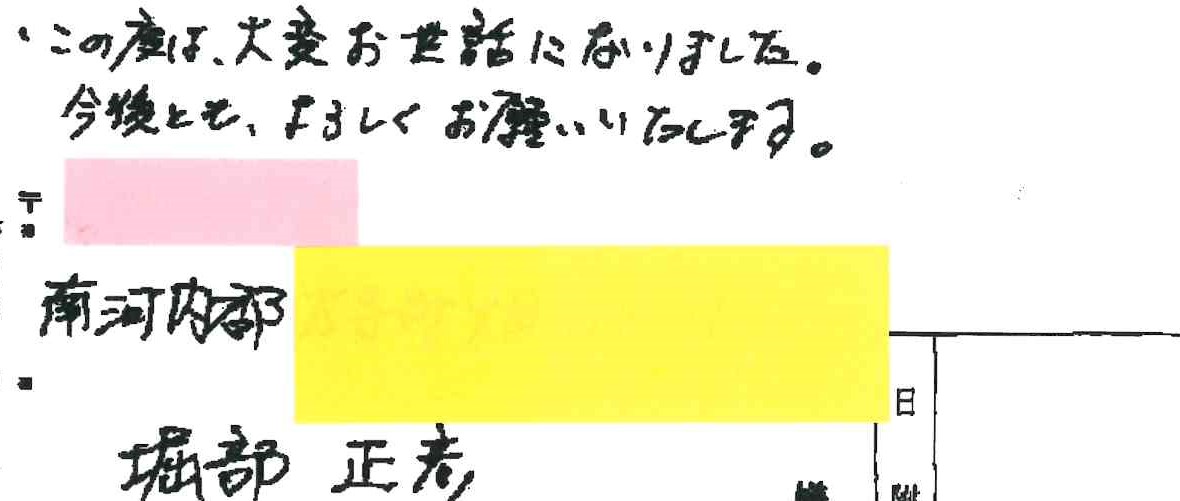 ・この度は、大変お世話になりました。
今後とも、よろしくお願いいたします。
〒
南河内郡
日
堀部 正彦
附